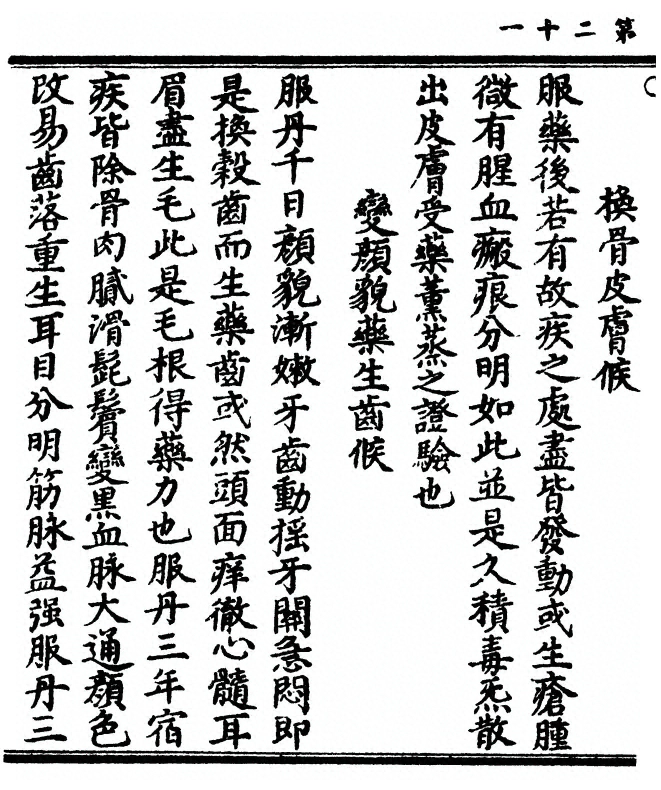 第二十一
換骨皮膚候
服藥後若有故疾之處盡皆發動或生瘡腫
微有腥血瘢痕分明如此並是久積毒炁散
出皮膚受藥薰蒸之證驗也
變顔貌藥生齒候
服丹千日顔貌漸嫩牙齒動揺牙關急悶即
是換穀齒而生藥齒或然頭面痒徹心髓耳
眉盡生毛此是毛根得藥力也服丹三年宿
疾皆除骨肉膩滑髭鬢變黒血脉大通顔色
改易齒落重生耳目分明筋脉益强服丹三